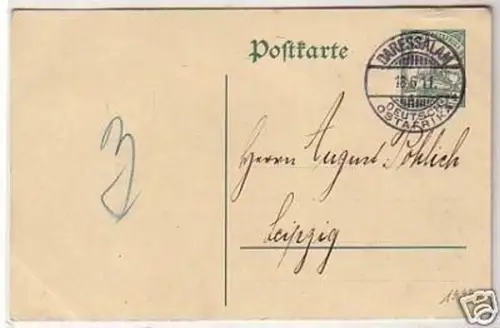 Postkarte
DARESSALAM
18.6.11.
DEUTSCH-
OSTAFRIKA
Herrn August Pöhlich
Leipzig